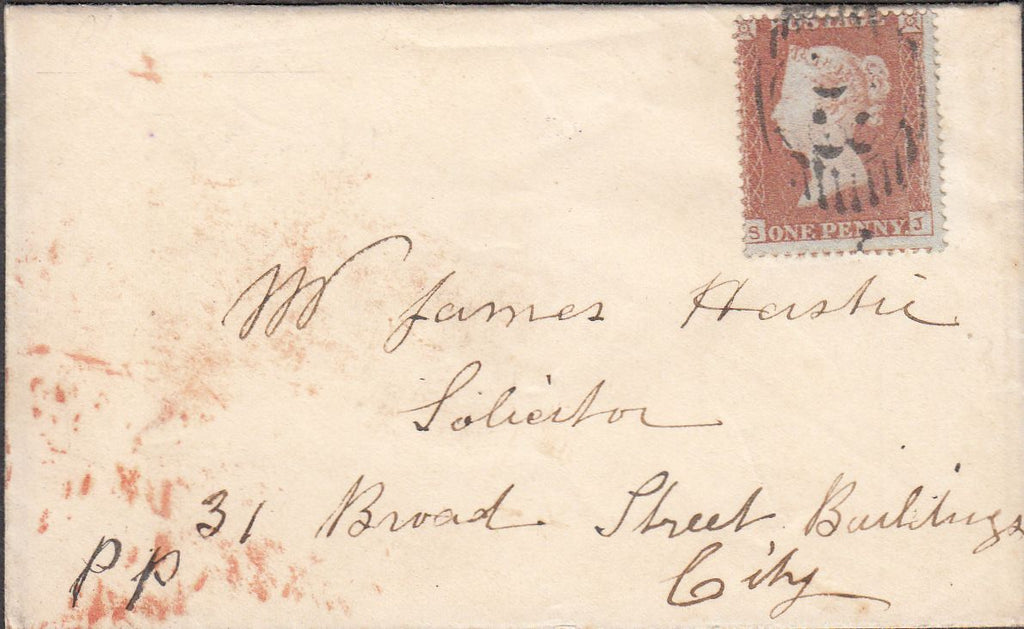 POSTAGE
S ONE PENNY J
Mr James Hastie
Solicitor
31 Broad Street Buildings
City
PP